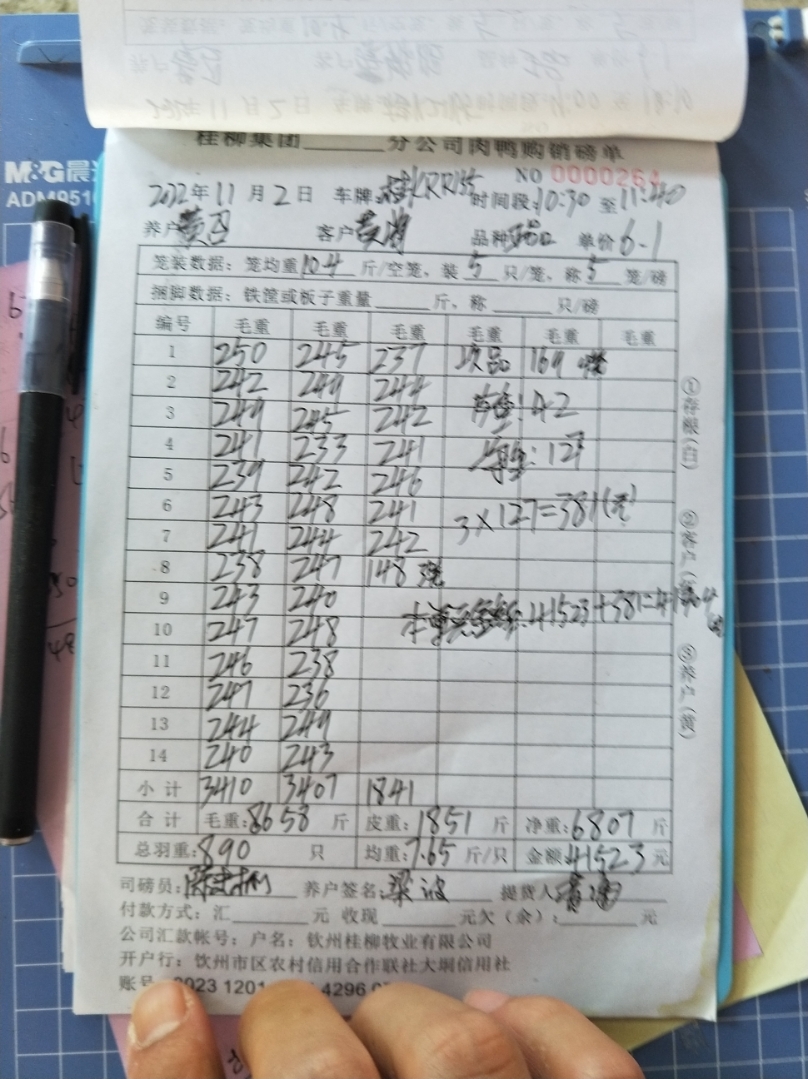 M&G晨
ADM9510
桂柳集团 分公司肉鸭购销磅单
NO 0000264
2022年11月2日 车牌: 时间段:10:30 至11:40
养户黄 客户黄 品种 单价6.1
笼装数据: 笼均重10.4斤/空笼, 装5只/笼, 称5笼/磅
捆脚数据: 铁筐或板子重量 斤, 称 只/磅
编号 毛重 毛重 毛重 毛重 毛重 毛重
1 250 245 237 次品 169
2 242 249 244
3 249 245 242 42
4 241 233 241 127
5 239 242 246
6 243 248 241 3×127=381(元)
7 241 244 242
8 238 247 148
9 243 240 41523+381=
10 247 248
11 246 238
12 247 236
13 244 249
14 240 243
小计 3410 3407 1841
合计 毛重:8658 斤 皮重:1851 斤 净重:6807 斤
总羽重:890 只 均重:7.65 斤/只 金额41523元
司磅员: 养户签名:梁波 提货人
付款方式: 汇 元 收现 元欠(余): 元
公司汇款帐号: 户名: 钦州桂柳牧业有限公司
开户行: 钦州市区农村信用合作联社大垌信用社
账号 0023 1201 4296 0
①存根(白)
②客户(
③养户(黄)